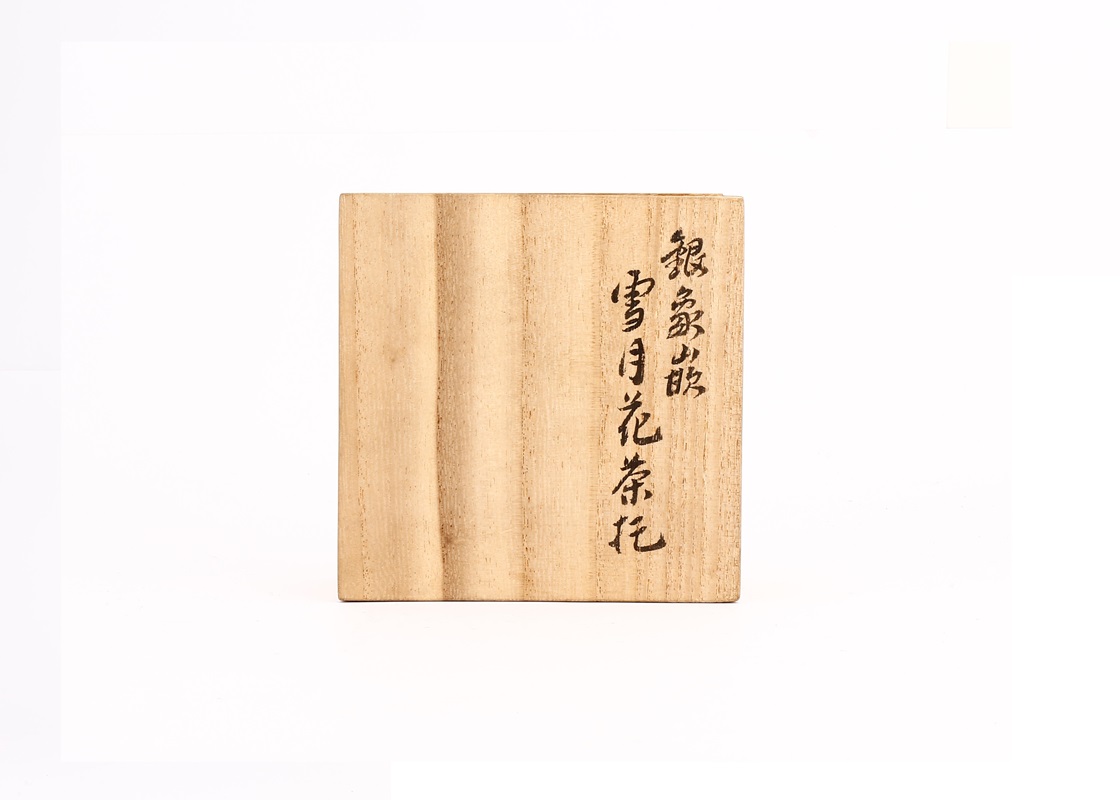 銀象嵌
雪月花茶托